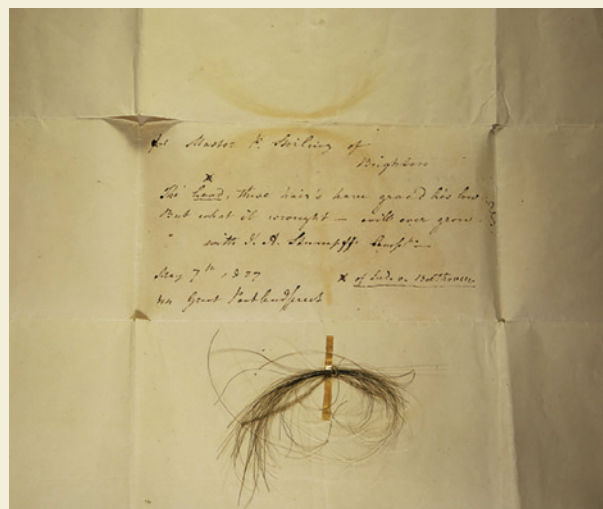 for Master P. Stirling of
Brighton
x
The head, these hair's have grac'd lies low
But what it wrought – will ever grow.
with J. A. Stumpff
May 7th 1827
x of Lud. v. Beethoven
Great Portland Street